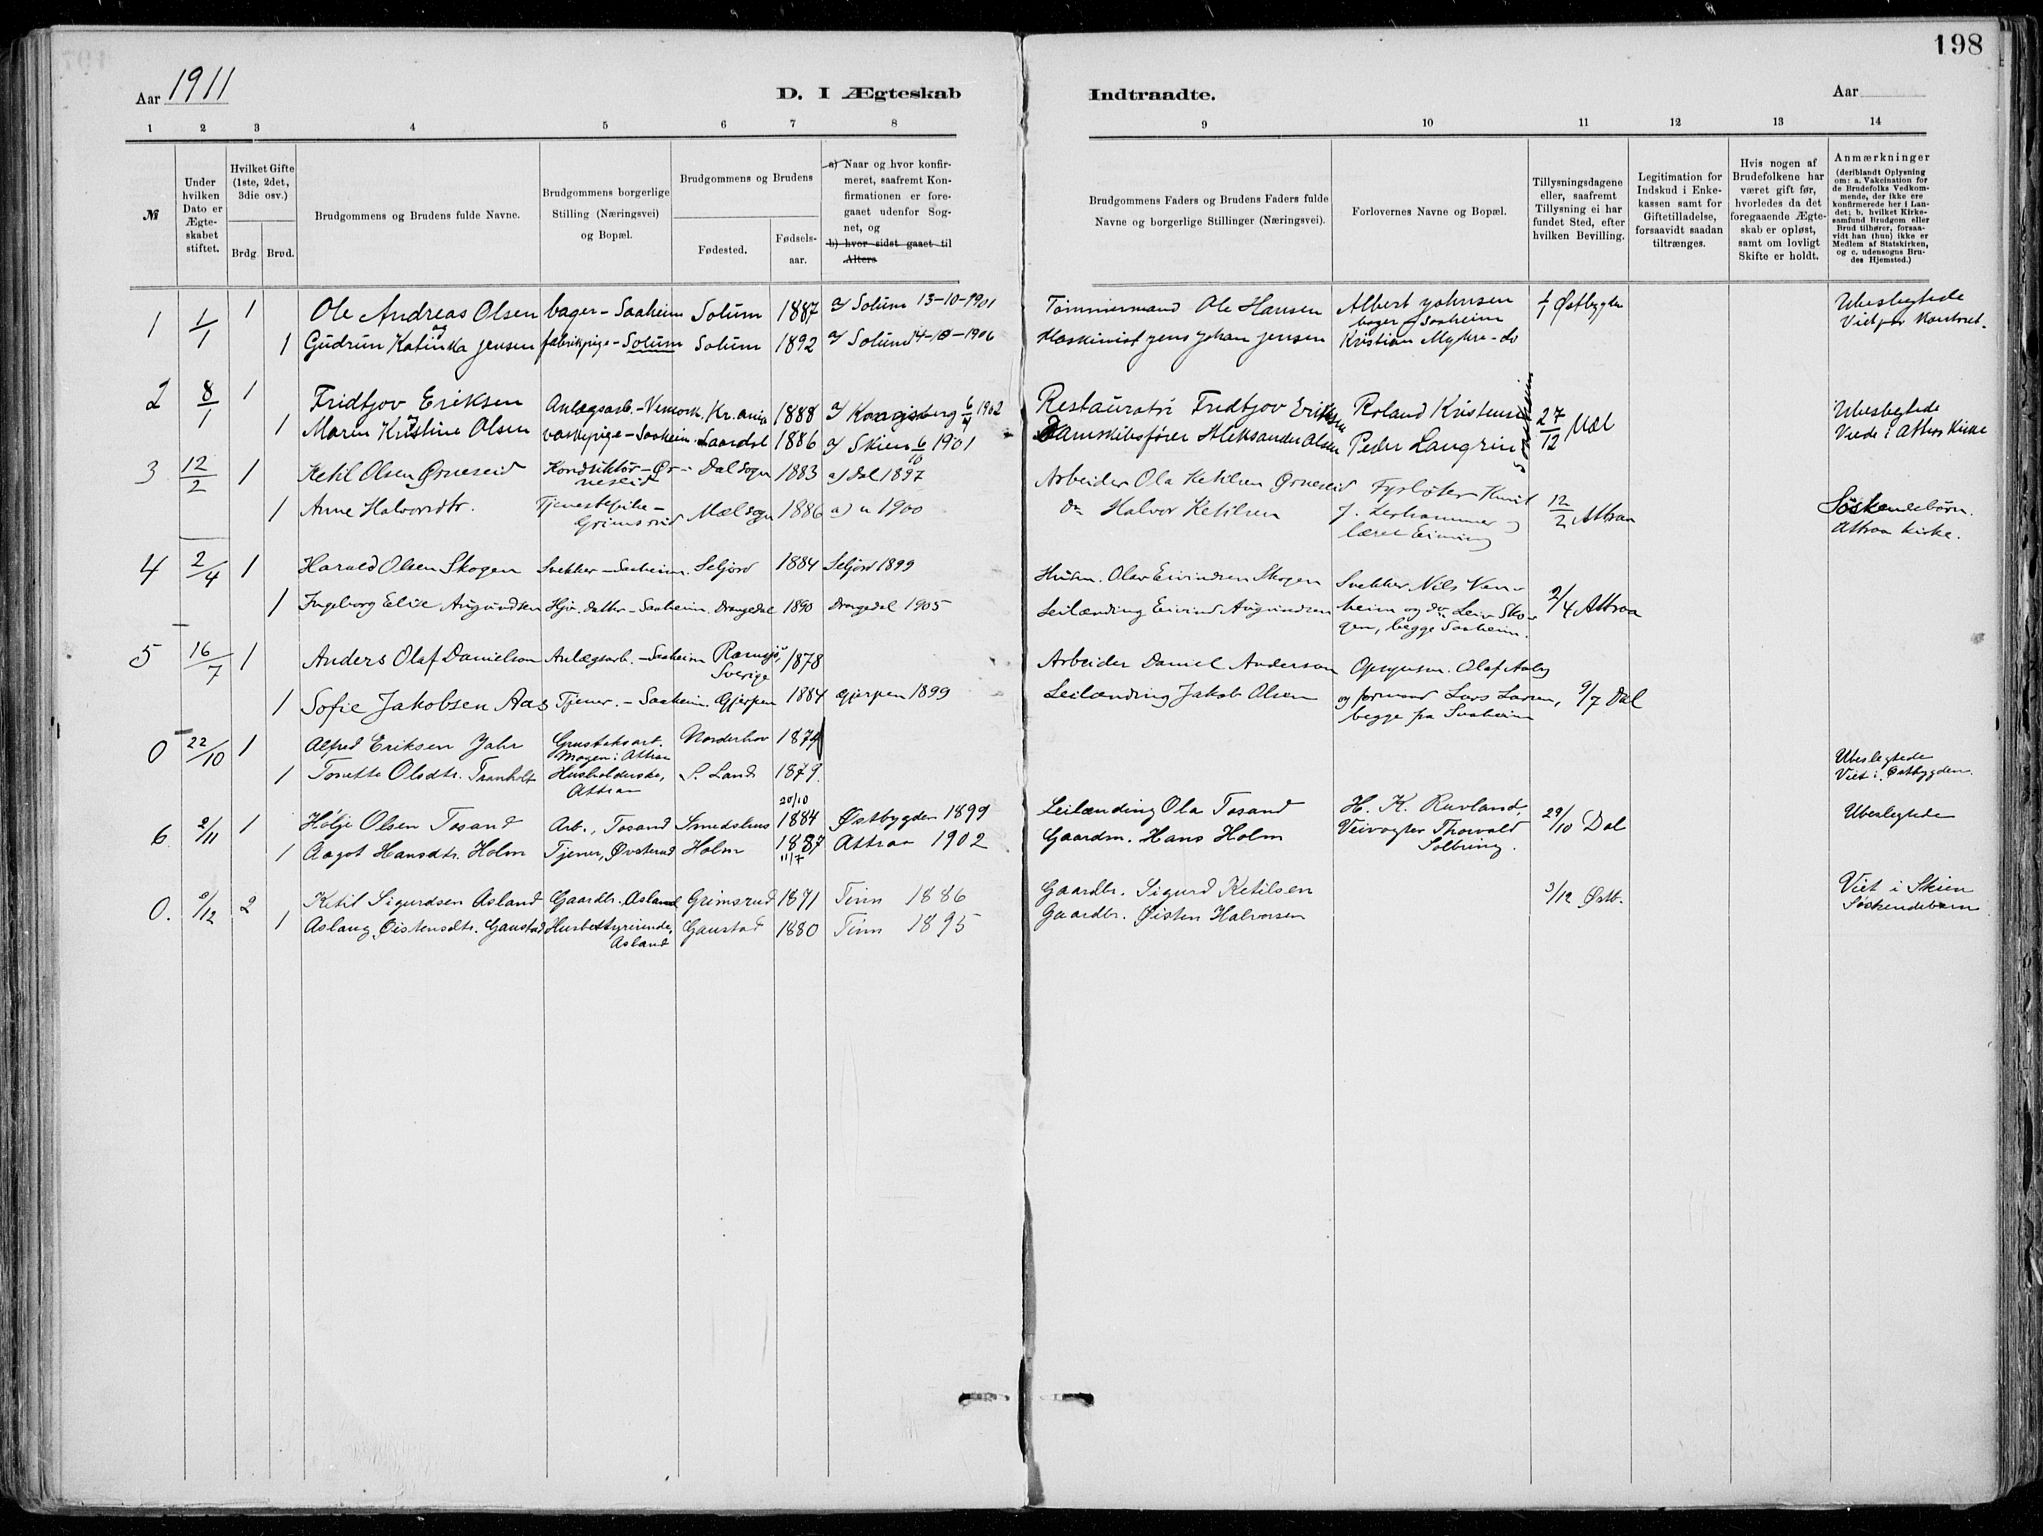 198
Aar 1911
D. I Ægteskab
Indtraadte.
Aar
1 2 3 4 5 6 7 8
9 10 11 12 13 14
№
Under hvilken Dato er Ægteskabet stiftet.
Hvilket Gifte (1ste, 2det, 3die osv.)
Brdg. Brud.
Brudgommens og Brudens fulde Navne.
Brudgommens borgerlige Stilling (Næringsvei) og Bopæl.
Brudgommens og Brudens
Fødested.
Fødselsaar.
a) Naar og hvor konfirmeret, saafremt Konfirmationen er foregaaet udenfor Sognet, og
b) hvor sidst gaaet til Alters
Brudgommens Faders og Brudens Faders fulde Navne og borgerlige Stillinger (Næringsvei).
Forlovernes Navne og Bopæl.
Tillysningsdagene eller, saafremt Tillysning ei har fundet Sted, efter hvilken Bevilling.
Legitimation for Indskud i Enkekassen samt for Giftetilladelse, forsaavidt saadan tiltrænges.
Hvis nogen af Brudefolkene har været gift før, hvorledes da det foregaaende Ægteskab er opløst, samt om lovligt Skifte er holdt.
Anmærkninger (deriblandt Oplysning om: a. Vakcination for de Brudefolks Vedkommende, der ikke ere konfirmerede her i Landet; b. hvilket Kirkesamfund Brudgom eller Brud tilhører, forsaavidt han (hun) ikke er Medlem af Statskirken, og c. udensogns Brudes Hjemsted.)
1 1/1 1 Ole Andreas Olsen bager – Saaheim Solum 1887 a/ Solum 13-10-1901 Tømmermand Ole Hansen Albert Johnsen bager – Saaheim 1/1 Østbygden Ubeslegtede
og
1 Gudrun Katinka Jensen fabrikpige – Solum Solum 1892 a/ Solum 14-10-1906 Maskinist Jens Johan Jensen Kristian Myhre – do Viet
2 8/1 1 Fridtjov Eriksen Anlægsarb. – Vemork Kr.ania 1888 a/ Kongsberg 6/4 1902 Restauratør Fridtjov Eriksen Roland Kristensen 27/12 Mæl Ubeslegtede
og
1 Maren Kristine Olsen vaskepige – Saaheim Laardal 1886 a/ Skien 6/10 1901 Damskibsfører Aleksander Olsen Peder Langrin Saaheim Viede i Attraa Kirke
3 12/2 1 Ketil Olsen Ørneseid Konduktør – Ørneseid Dal sogn 1883 a) Dal 1897 Arbeider Ola Ketilsen Ørneseid Fyrbøter Knut
1 Anne Halvorsdtr. Tjenestepike – Grimsrud Mæl sogn 1886 a) " 1900 do Halvor Ketilsen J. og lærer 12/2 Attraa Søskendebørn. Attraa kirke.
4 2/4 1 Harald Olsen Skogen Snekker – Saaheim. Seljord 1884 Seljord 1899 Husm. Olav Eivindsen Skogen Snekker Nils
1 Ingeborg Elise Augundsen Hjv. datter – Saaheim. Drangedal 1890 Drangedal 1905 Leilænding Eivind Augundsen heim og do Leiv Skogen, begge Saaheim. 2/4 Attraa
5 16/7 1 Anders Olaf Danielson Anlægsarb. – Saaheim Sverige 1878 Arbeider Daniel Anderson Opsynsm. Olaf Aaby
1 Sofie Jakobsen Aas Tjener. – Saaheim. Gjerpen 1884 Gjerpen 1899 Leilænding Jakob Olsen og formand Lars Larsen, begge paa Saaheim 9/7 Dal
0 22/10 1 Alfred Eriksen Jahr Grustaksarb. Mogen i Attraa Norderhov 1874
1 Tonette Olsdtr. Tranholt Husholderske, Attraa S. Land 1879. Ubeslegtede Viet i Østbygden.
6. 2/11 1 Hölje Olsen Tosand Arb., Tosand Smedshus 20/10 1884 Østbygden 1899 Leilænding Ola Tosand H. K. Ruvland, 29/10 Dal Ubeslegtede
1 Aagot Hansdtr. Holm Tjener, Øvsterud Holm 1887 11/7 Attraa 1902 Gaardm. Hans Holm Veivogter Thorvald Solbring.
0. 3/12 2 Ketil Sigurdsen Asland Gaardbr. Asland Grimsrud 1871 Tinn 1886 Gaardbr. Sigurd Ketilsen 3/12 Østb. Viet i Skien
1 Aslaug Øistensdtr. Gaustad Husbestyrerinde, Asland Gaustad 1880 Tinn 1895 Gaardbr. Øisten Halvorsen Søskendebørn